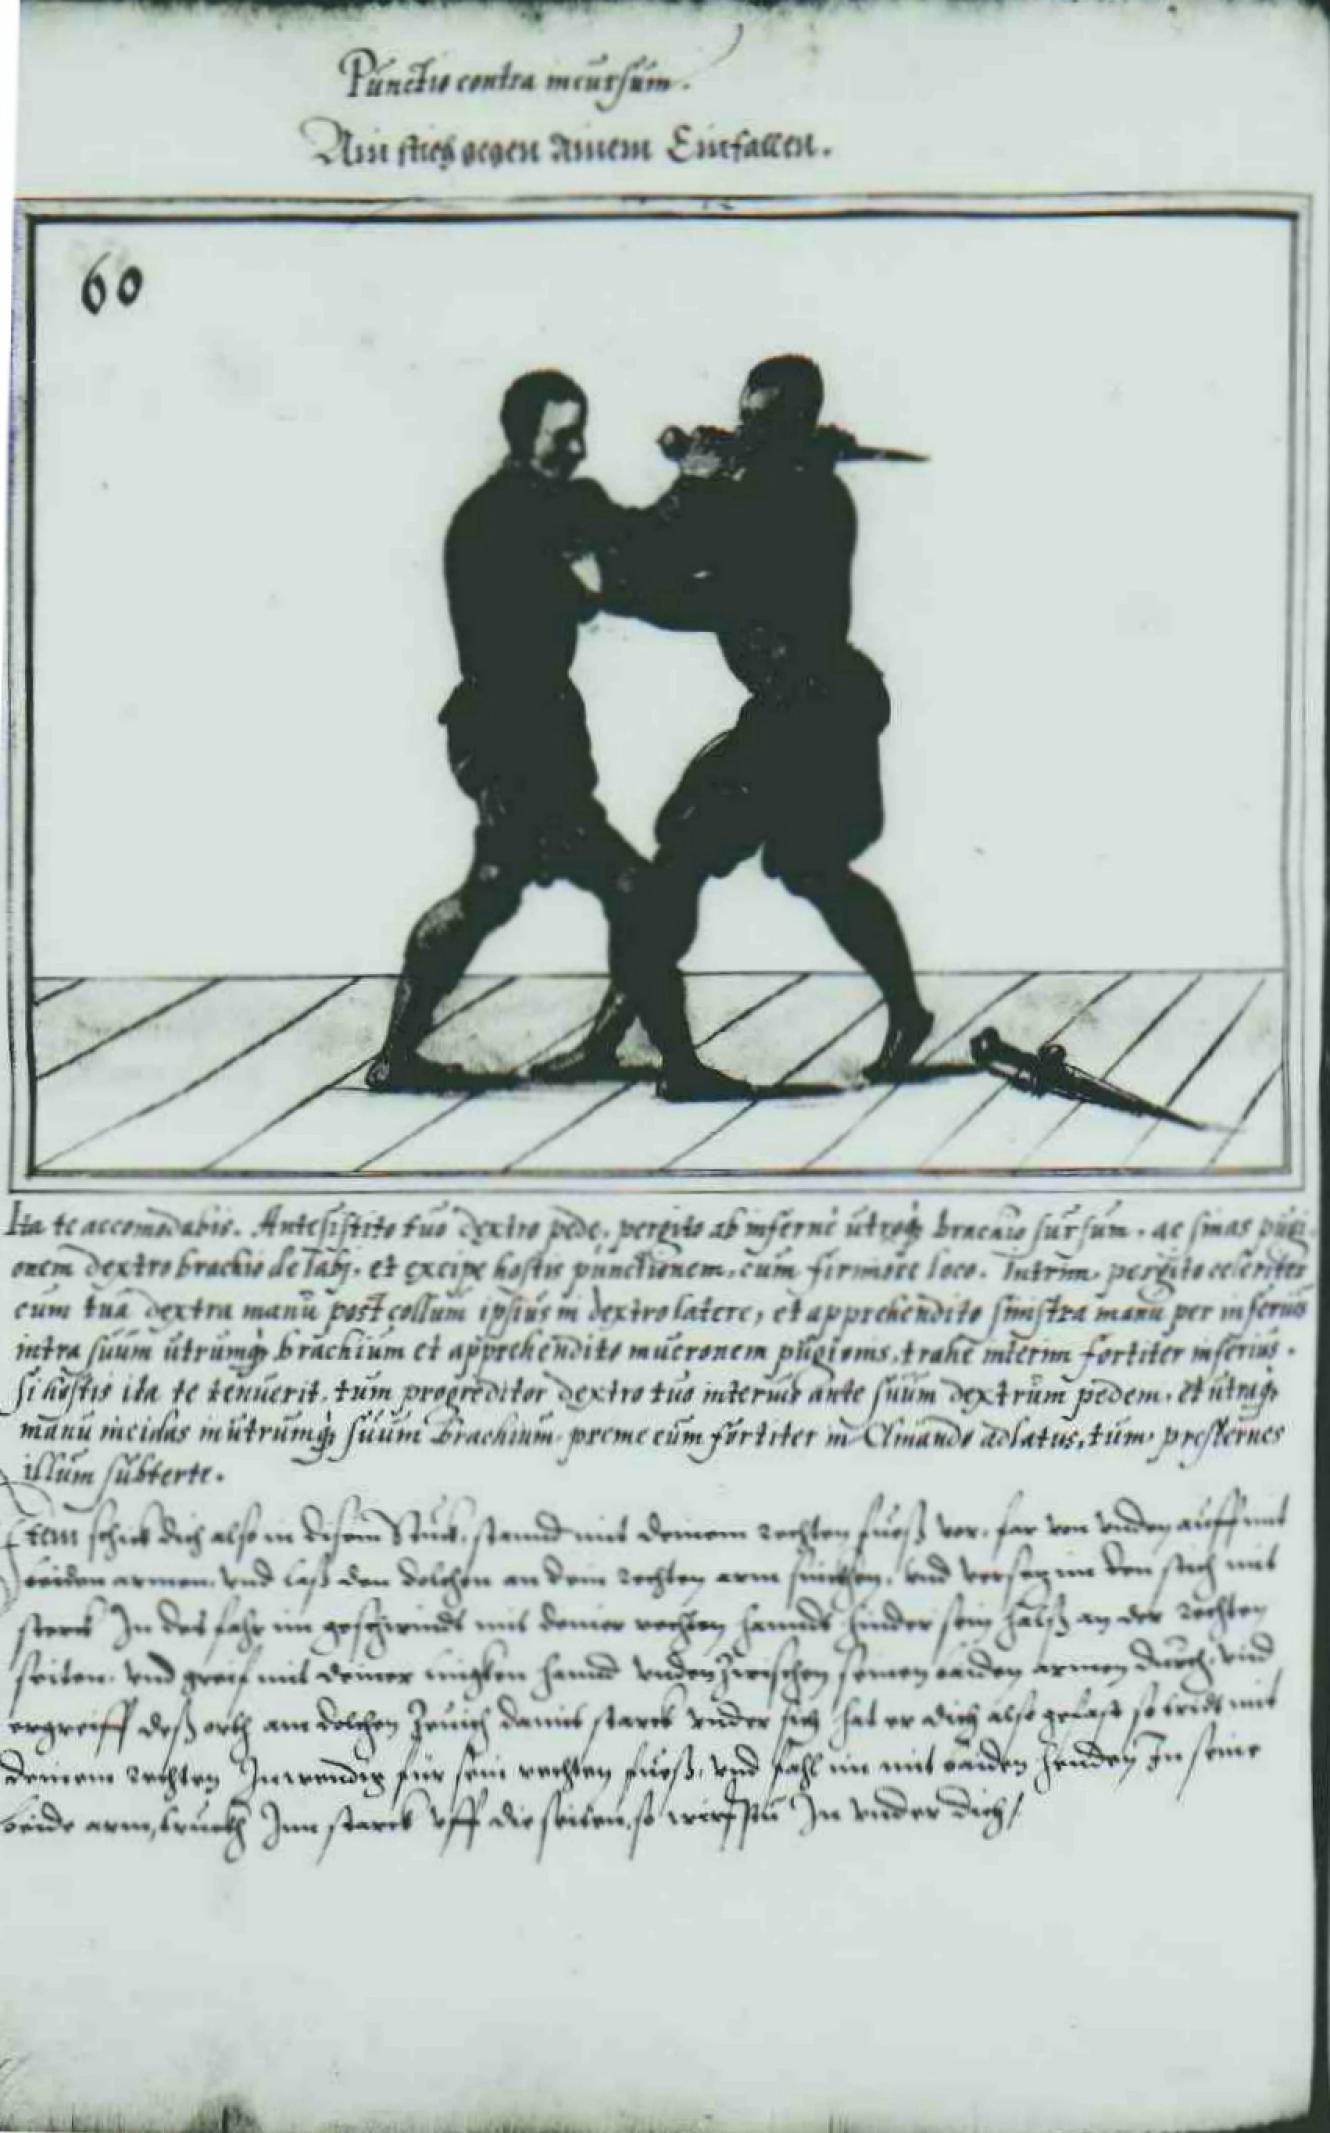 Punctio contra incursum.
Ain stich gegen Ainem Einfallen.
60
Ita te accomodabis. Antesistito tuo dextro pede, pergito ab infernè utroq; brachio sursum, ac sinas pugi-
onem dextro brachio delabj, et excipe hostis punctionem, cum firmiore loco. Intrim, pergito celeriter
cum tua dextra manu post collum ipsius in dextro latere, et apprehendito sinistra manu per inferius
intra suum utrumq; brachium et apprehendito mucronem pugionis, trahe interim fortiter inferius.
si hostis ita te tenuerit, tum progreditor dextro tuo interius ante suum dextrum pedem, et utraq;
manu incidas in utrumq; suum Brachium preme eum fortiter in ad latus, tum, prosternes
illum subter te.
Item schick dich also in disem Stuck, stannd mit deinem rechten fuoß vor, far von unden auff mit
baiden armen, und laß den dolchen an dein rechten arm sinckhen, und versetz im den stich mit
sterck In des fahr im geschwindt mit deiner rechten hanndt hinder sein halß an der rechten
seiten, und greif mit deiner lingken hannd unden zwischen seinen baiden armen durch, und
ergreiff deß orth am dolchen Zeuch damit starck under sich hat er dich also gefast so tridt mit
deinem rechten Inwendig für sein rechten fuoß, und fahl im mit baiden henden In seine
baide arm, truckh Inn starck uff die seiten, so wirfstu In under dich /